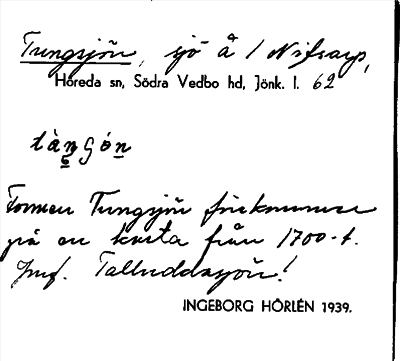 Tungsjön, sjö å 1 Nifsarp,
Höreda sn, Södra Vedbo hd, Jönk. l. 62
tàŋgón
Formen Tungsjön förekommer
på en karta från 1700-t.
Jmf. Talluddasjön!
INGEBORG HÖRLÉN 1939.